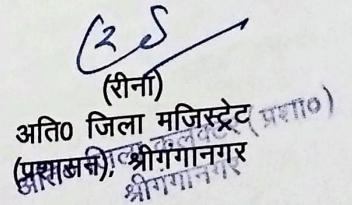 (रीना)
अति0 जिला मजिस्ट्रेट
(प्रशासन), श्रीगंगानगर
जिला कलक्टर (प्रशा०)
श्रीगंगानगर